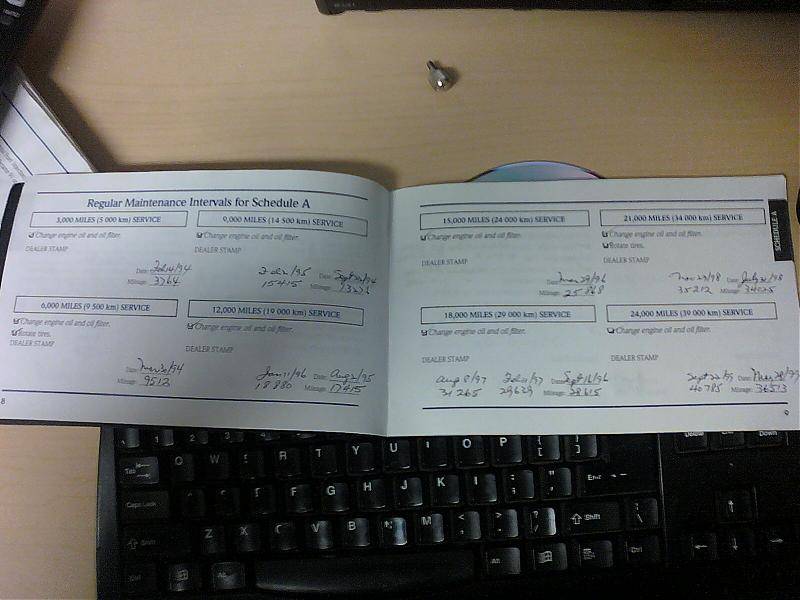 Regular Maintenance Intervals for Schedule A
3,000 MILES (5 000 km) SERVICE
Change engine oil and oil filter.
DEALER STAMP
Date: Feb 14/94
Mileage: 3764
9,000 MILES (14 500 km) SERVICE
Change engine oil and oil filter.
DEALER STAMP
Feb 21/95 Date: Sept 22/94
15415 Mileage: 13276
6,000 MILES (9 500 km) SERVICE
Change engine oil and oil filter.
Rotate tires.
DEALER STAMP
Date: May 20/94
Mileage: 9512
12,000 MILES (19 000 km) SERVICE
Change engine oil and oil filter.
DEALER STAMP
Jan 11/96 Date: Aug 2/95
18880 Mileage: 17415
8
15,000 MILES (24 000 km) SERVICE
Change engine oil and oil filter.
DEALER STAMP
Date:
Mileage: 25868
21,000 MILES (34 000 km) SERVICE
Change engine oil and oil filter.
Rotate tires.
DEALER STAMP
Date: July 21/98
35212 Mileage: 34025
18,000 MILES (29 000 km) SERVICE
Change engine oil and oil filter.
DEALER STAMP
Aug 8/97 Feb 11/97 Date: Sept 16/96
31265 29639 Mileage: 28615
24,000 MILES (39 000 km) SERVICE
Change engine oil and oil filter.
DEALER STAMP
Sept 22/99 Date:
40785 Mileage: 36513
9
SCHEDULE A
Tab
Q W E R T Y U I O P { [ } ]
Caps Lock
F G H J K L : ; " '
Enter
Shift
Z X C V B N M < , > . ? /
Shift
Ctrl
Alt
Alt
Ctrl
Delete End
Down